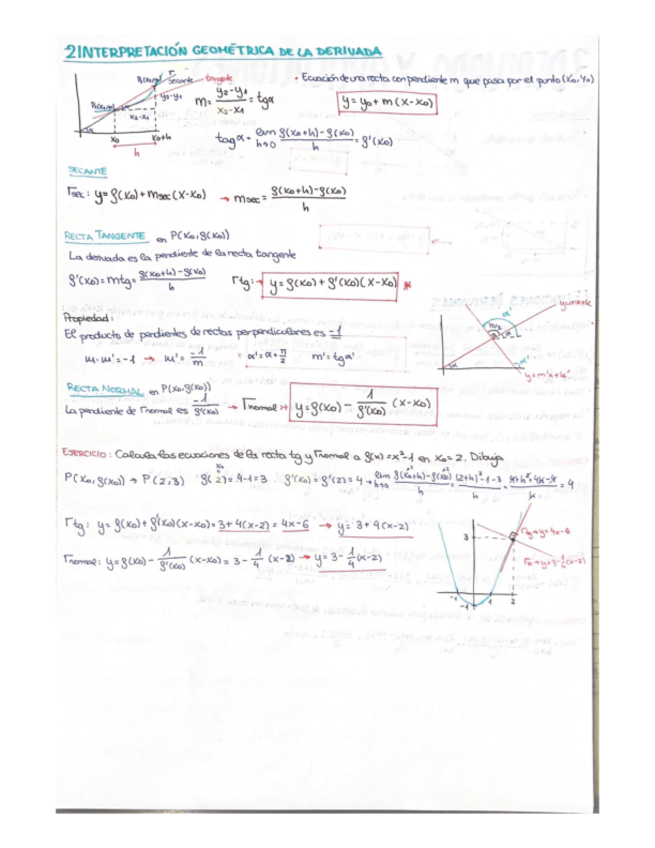 2 INTERPRETACIÓN GEOMÉTRICA DE LA DERIVADA
secante tangente
y₂-y₁
x₂-x₁
x₀ x₀+h
h
m = (y₂-y₁)/(x₂-x₁) = tgα
• Ecuación de una recta con pendiente m que pasa por el punto (x₀, y₀)
y = y₀ + m (x-x₀)
tagα = lim h→0 (f(x₀+h)-f(x₀))/h = f'(x₀)
SECANTE
rsec: y = f(x₀) + msec (x-x₀) → msec = (f(x₀+h)-f(x₀))/h
RECTA TANGENTE en P(x₀, f(x₀))
La derivada es la pendiente de la recta tangente
f'(x₀) = mtg = (f(x₀+h)-f(x₀))/h rtg: → y = f(x₀) + f'(x₀)(x-x₀) *
Propiedad:
El producto de pendientes de rectas perpendiculares es -1
m·m' = -1 → m' = -1/m = α' = α + π/2 m' = tgα'
α'
π/2
α
y=m'x+k'
RECTA NORMAL en P(x₀, f(x₀))
La pendiente de rnormal es -1/f'(x₀) → rnormal → y = f(x₀) - 1/f'(x₀) (x-x₀)
EJERCICIO: Calcula las ecuaciones de la recta tg y rnormal a f(x) = x²-1 en x₀ = 2. Dibuja
P(x₀, f(x₀)) → P(2,3) f(2) = 4-1 = 3 f'(x₀) = f'(2) = 4 → lim h→0 (f(x₀+h)-f(x₀))/h = ((2+h)²-1-3)/h = (4+h²+4h-4)/h = 4
rtg: y = f(x₀) + f'(x₀)(x-x₀) = 3+4(x-2) = 4x-6 → y = 3+4(x-2)
rnormal: y = f(x₀) - 1/f'(x₀) (x-x₀) = 3 - 1/4 (x-2) → y = 3 - 1/4 (x-2)
3
rtg → y=4x-6
rn → y=3-1/4(x-2)
-1 1 2
-1